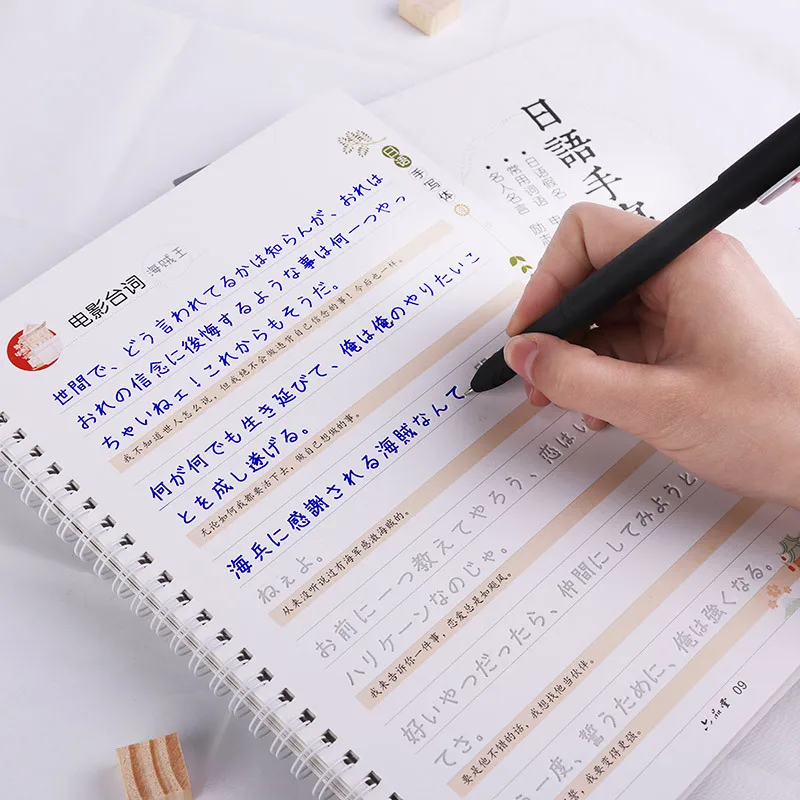 日语
手写体
电影台词
海贼王
世間で、どう言われてるかは知らんが、おれは
おれの信念に後悔するような事は何一つやっ
ちゃいねェ！これからもそうだ。
我不知道世人怎么说，但我绝不会做违背自己信念的事！今后也一样。
何が何でも生き延びて、俺は俺のやりたいこ
とを成し遂げる。
无论如何我都要活下去，做自己想做的事。
海兵に感謝される海賊なんて
ねぇよ。
从来没听说过有海军感激海贼的。
お前に一つ教えてやろう、恋はい
ハリケーンなのじゃ。
我来告诉你一件事，恋爱总是如飓风。
好いやつだったら、仲間にしてみようと
てさ。
要是他不错的话，我想找他当伙伴。
一度、誓うために、俺は強くなる。
苦，我要变得更强。
六品堂 09
日語手
日语假名
常用词语
名人名言
励志